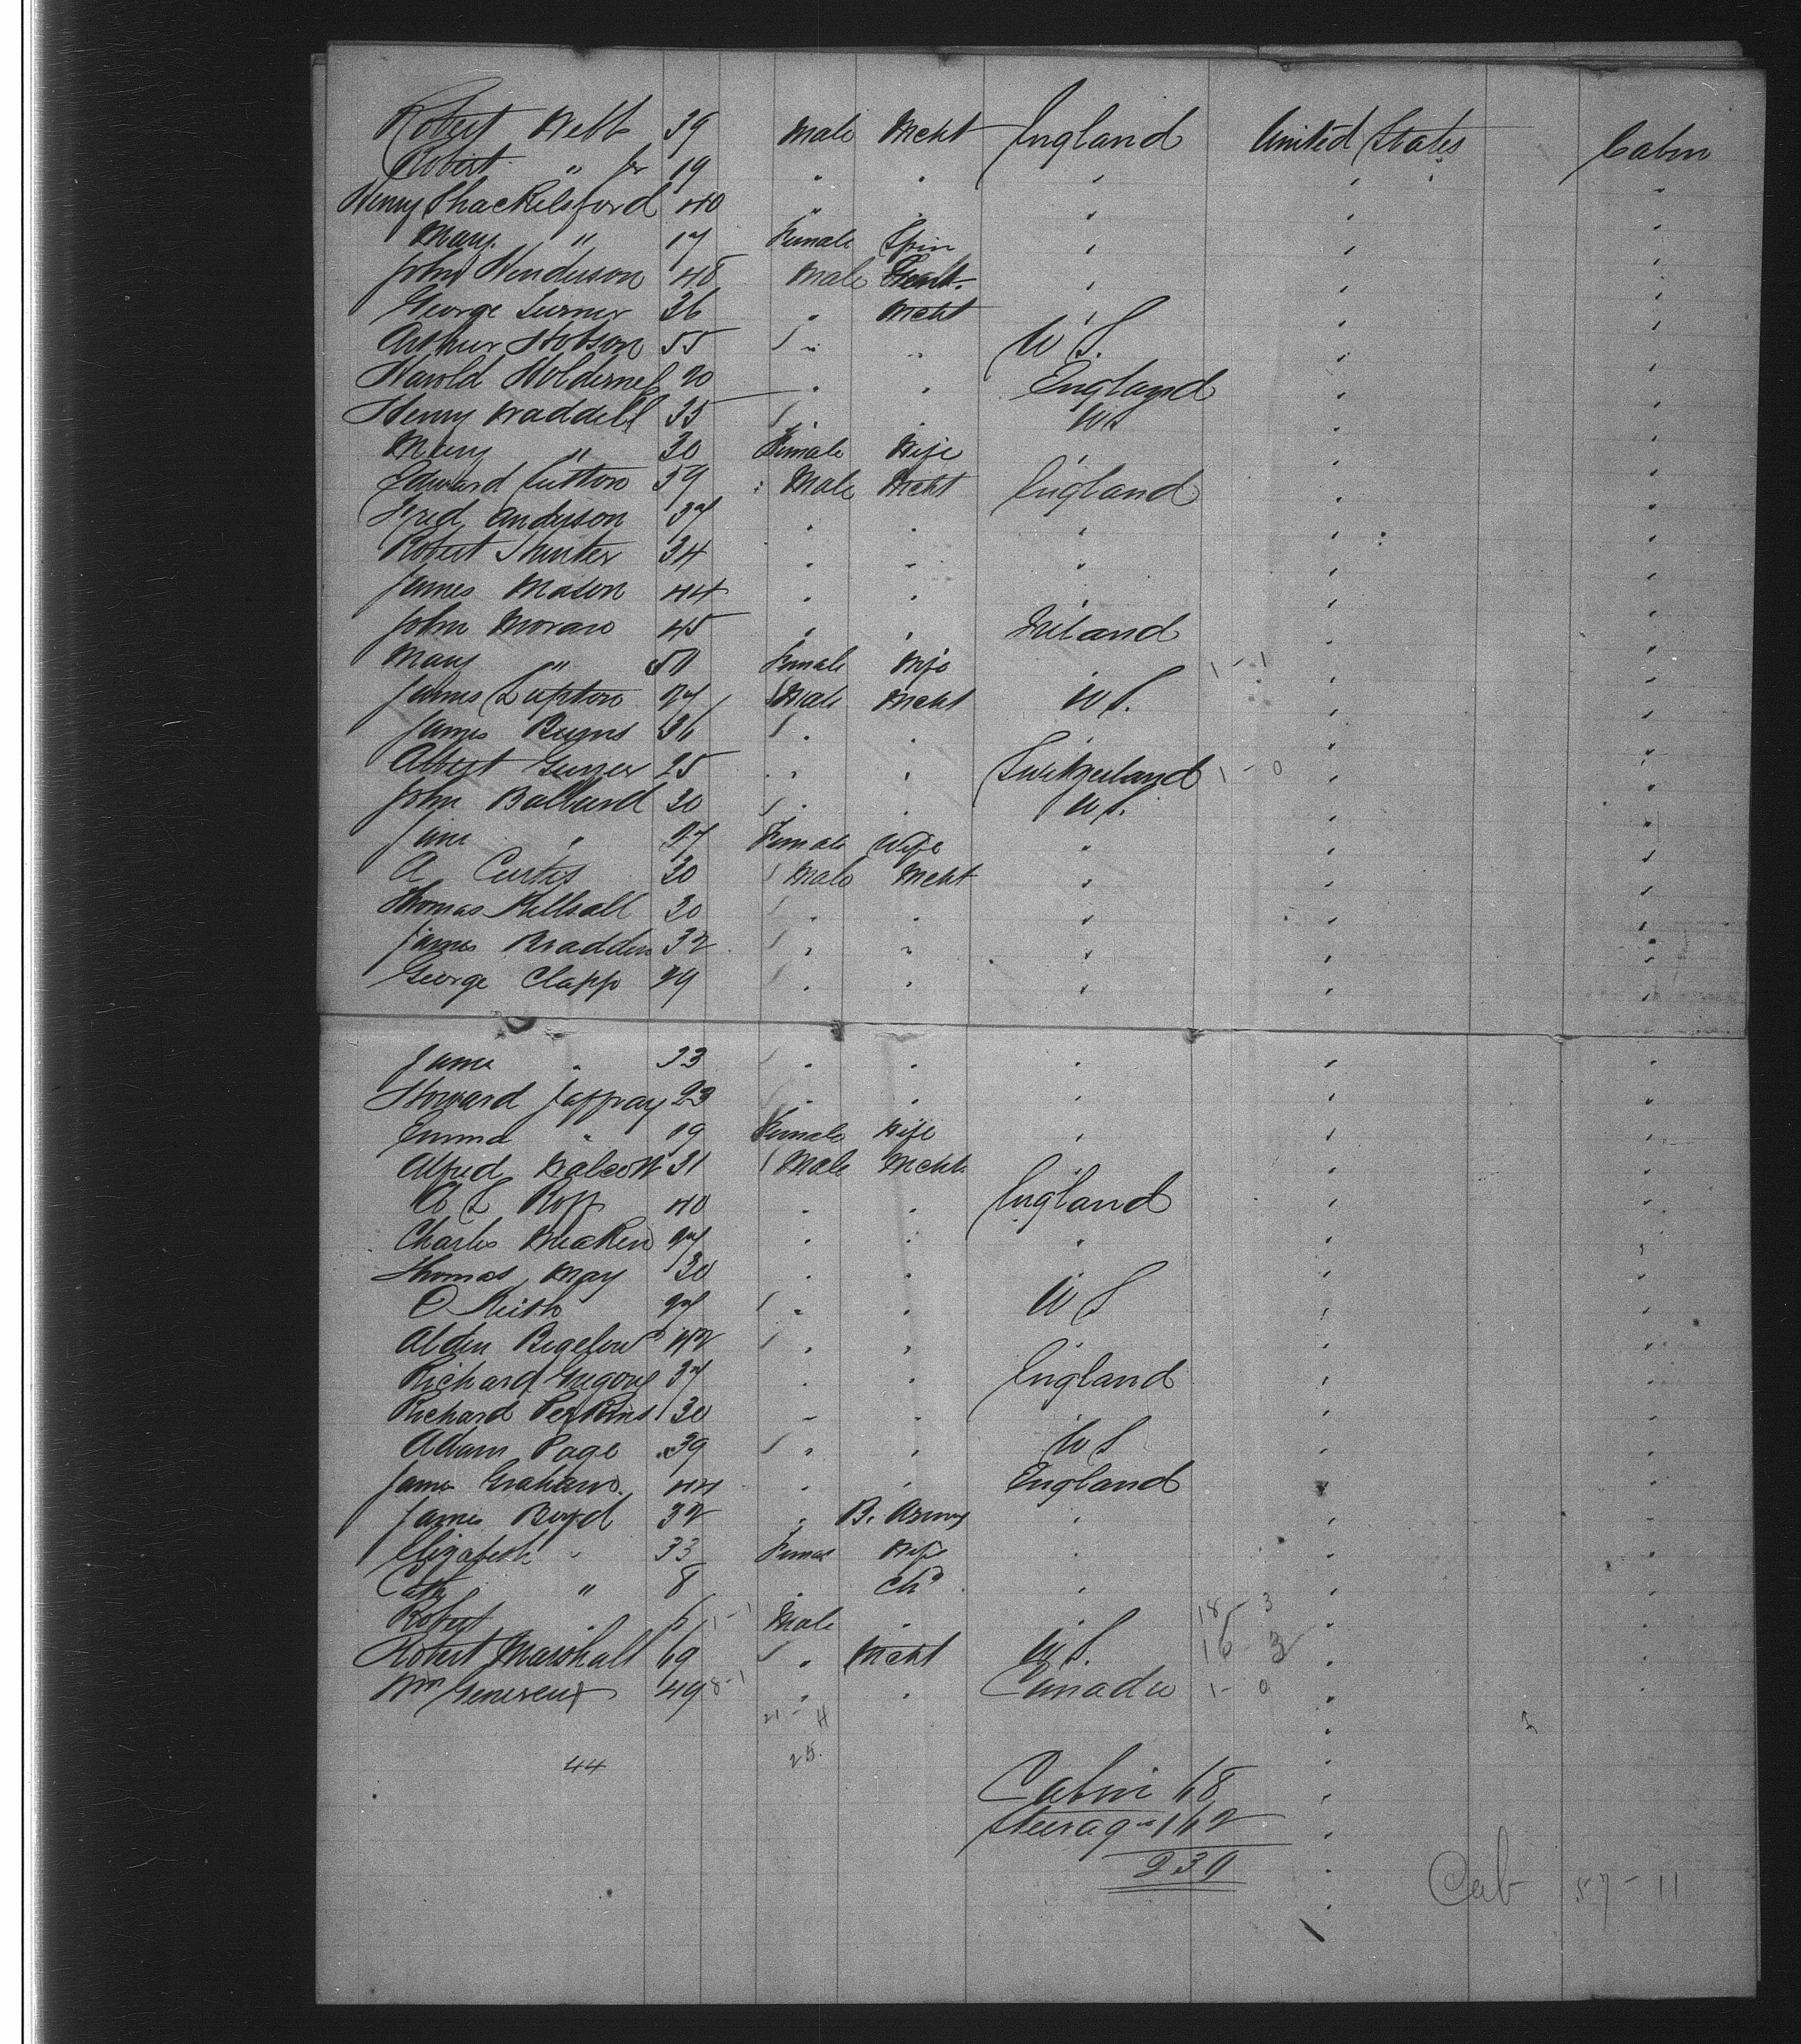 Robert Webb 39 Male Mcht England United States Cabin
Robert " Jr 19 " " " " "
Henry Shackelsford 40 " " " " "
Mary " 17 Female Spin " " "
John Henderson 48 Male " "
George Turner 36 " Mcht " " "
Arthur Hobson 55 " " U S. " "
Harold Holderness 20 " " England " "
Henry Waddell 35 " " U S " "
Mary " 30 Female Wife " " "
Edward Sutton 59 Male Mcht England " "
Fred Anderson 37 " " " " "
Robert Hunter 34 " " " " "
James Mason 44 " " " " "
John Moran 45 " " Ireland " "
Mary " 50 Female Wife " " " 1 - 1
James Lupton 27 Male Mcht U S. " "
James Burns 36 " " " " "
Albert 25 " " Switzerland 1 - 0 " "
John Ballard 30 " " U S. " "
Jane " 27 Female Wife " " "
A Curtis 30 Male Mcht " " "
Thomas Kellsall 30 " " " " "
James Bradden 32 " " " " "
George Clapp 29 " " " " "
James " 33 " " " " "
Howard Jaffray 23 " " " " "
Emma " 19 Female Wife " " "
Alfred Walcott 31 Male Mcht " " "
A L 40 " " England " "
Charles Meakin 27 " " " " "
Thomas May 30 " " " " "
O Keith 27 " " U S " "
Alden Bigelow 42 " " " " "
Richard Gregory 37 " " England " "
Richard Perkins 30 " " " " "
Adam Page 39 " " U S " "
James Graham 44 " " England " "
James Boyd 32 " B. Army " " "
Elizabeth " 33 Femal Wife " " "
" 8 " Chd " " "
Robert " 6 1 - 1 Male " " 18 - 3 " "
Robert Marshall 69 " Mcht U S. 16 - 3 " "
Wm 49 8 - 1 " " Canada 1 - 0 " "
21 - 4
44 25.
Cabin 68
Steerage 162
230
Cab 57 - 11